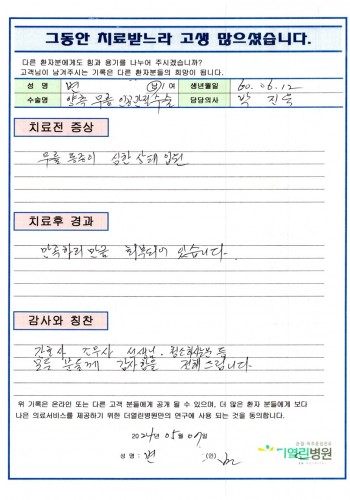 그동안 치료받느라 고생 많으셨습니다.
다른 환자분에게도 힘과 용기를 나누어 주시겠습니까?
고객님이 남겨주시는 기록은 다른 환자분들의 희망이 됩니다.
성 명 변 남/여 생년월일 60.06.12
수술명 양측 무릎 인공관절수술 담당의사 박진욱
치료전 증상
무릎 통증이 심한 상태 였던
치료후 경과
만족하리 만큼 회복되어 있습니다.
감사와 칭찬
간호사 조무사 선생님. 청소하시는분 등
모든 분들께 감사함을 전해드립니다.
위 기록은 온라인 또는 다른 고객 분들에게 공개 될 수 있으며, 더 많은 환자 분들에게 보다
나은 의료서비스를 제공하기 위한 더열린병원만의 연구에 사용 되는 것을 동의합니다.
2024년 05월 07일
성 명 : 변 (인)
더열린병원